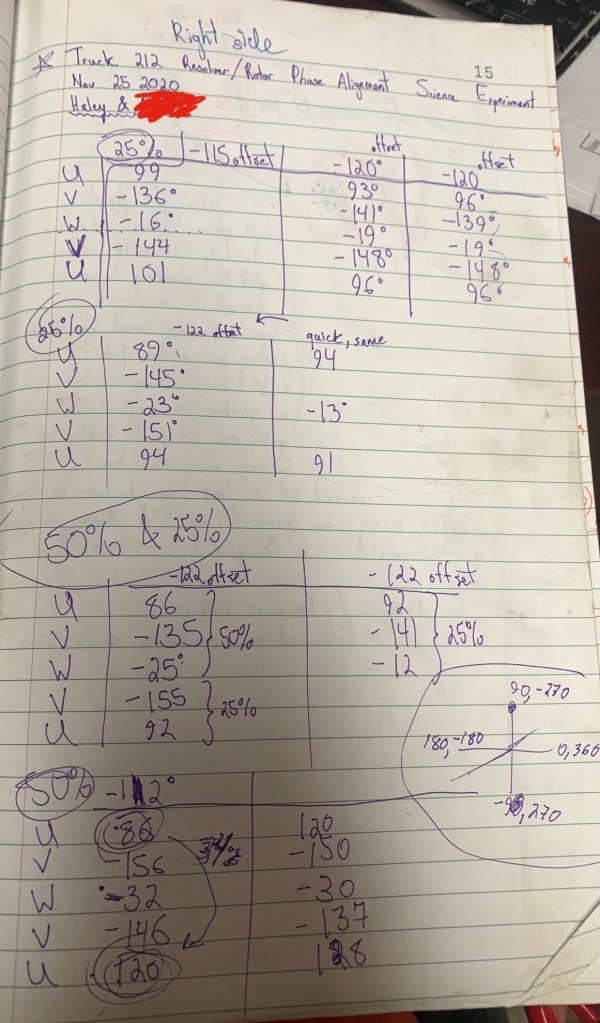 Right side
15
☆ Truck 212 Resolver/Rotor Phase Alignment Science Experiment
Nov 25 2020
Haley &
25% -115 offset offset -120° offset -120
U 99 93° 96°
V -136° -141° -139°
W -16° -19° -19°
V -144 -148° -148°
U 101 96° 96°
25% -122 offset ← quick, same
U 89° 94
V -145°
W -23° -13°
V -151°
U 94 91
50% & 25%
-122 offset -122 offset
U 86 92
V -135 50% -141 25%
W -25° -12
V -155 25%
U 92
90, -270
180, -180 0, 360
-90, 270
50% -112°
U 86 120
V -156 34% -150
W -32 -30
V -146 -137
U 120 128